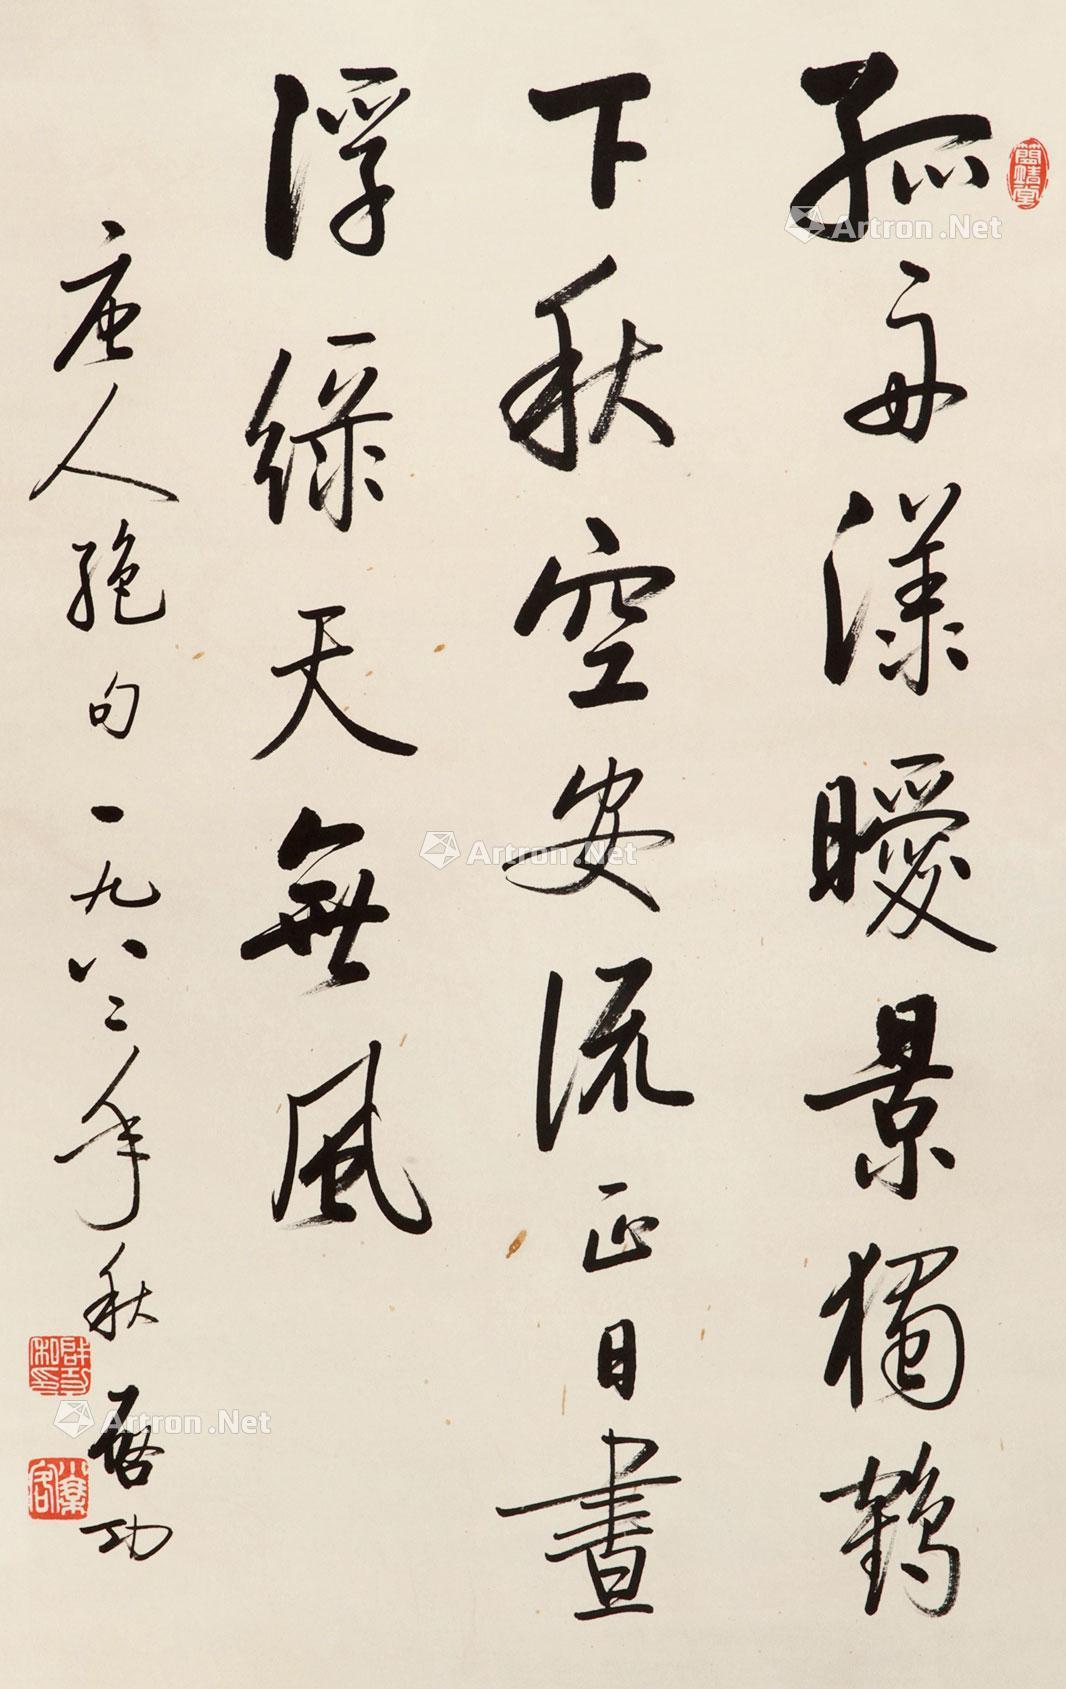 孤舟漾曖景獨鶴
下秋空安流正日晝
浮綠天無風
唐人絕句一九八二年秋
啓功
簡靖堂
啟功私印
Artron.Net
Artron.Net
Artron.Net